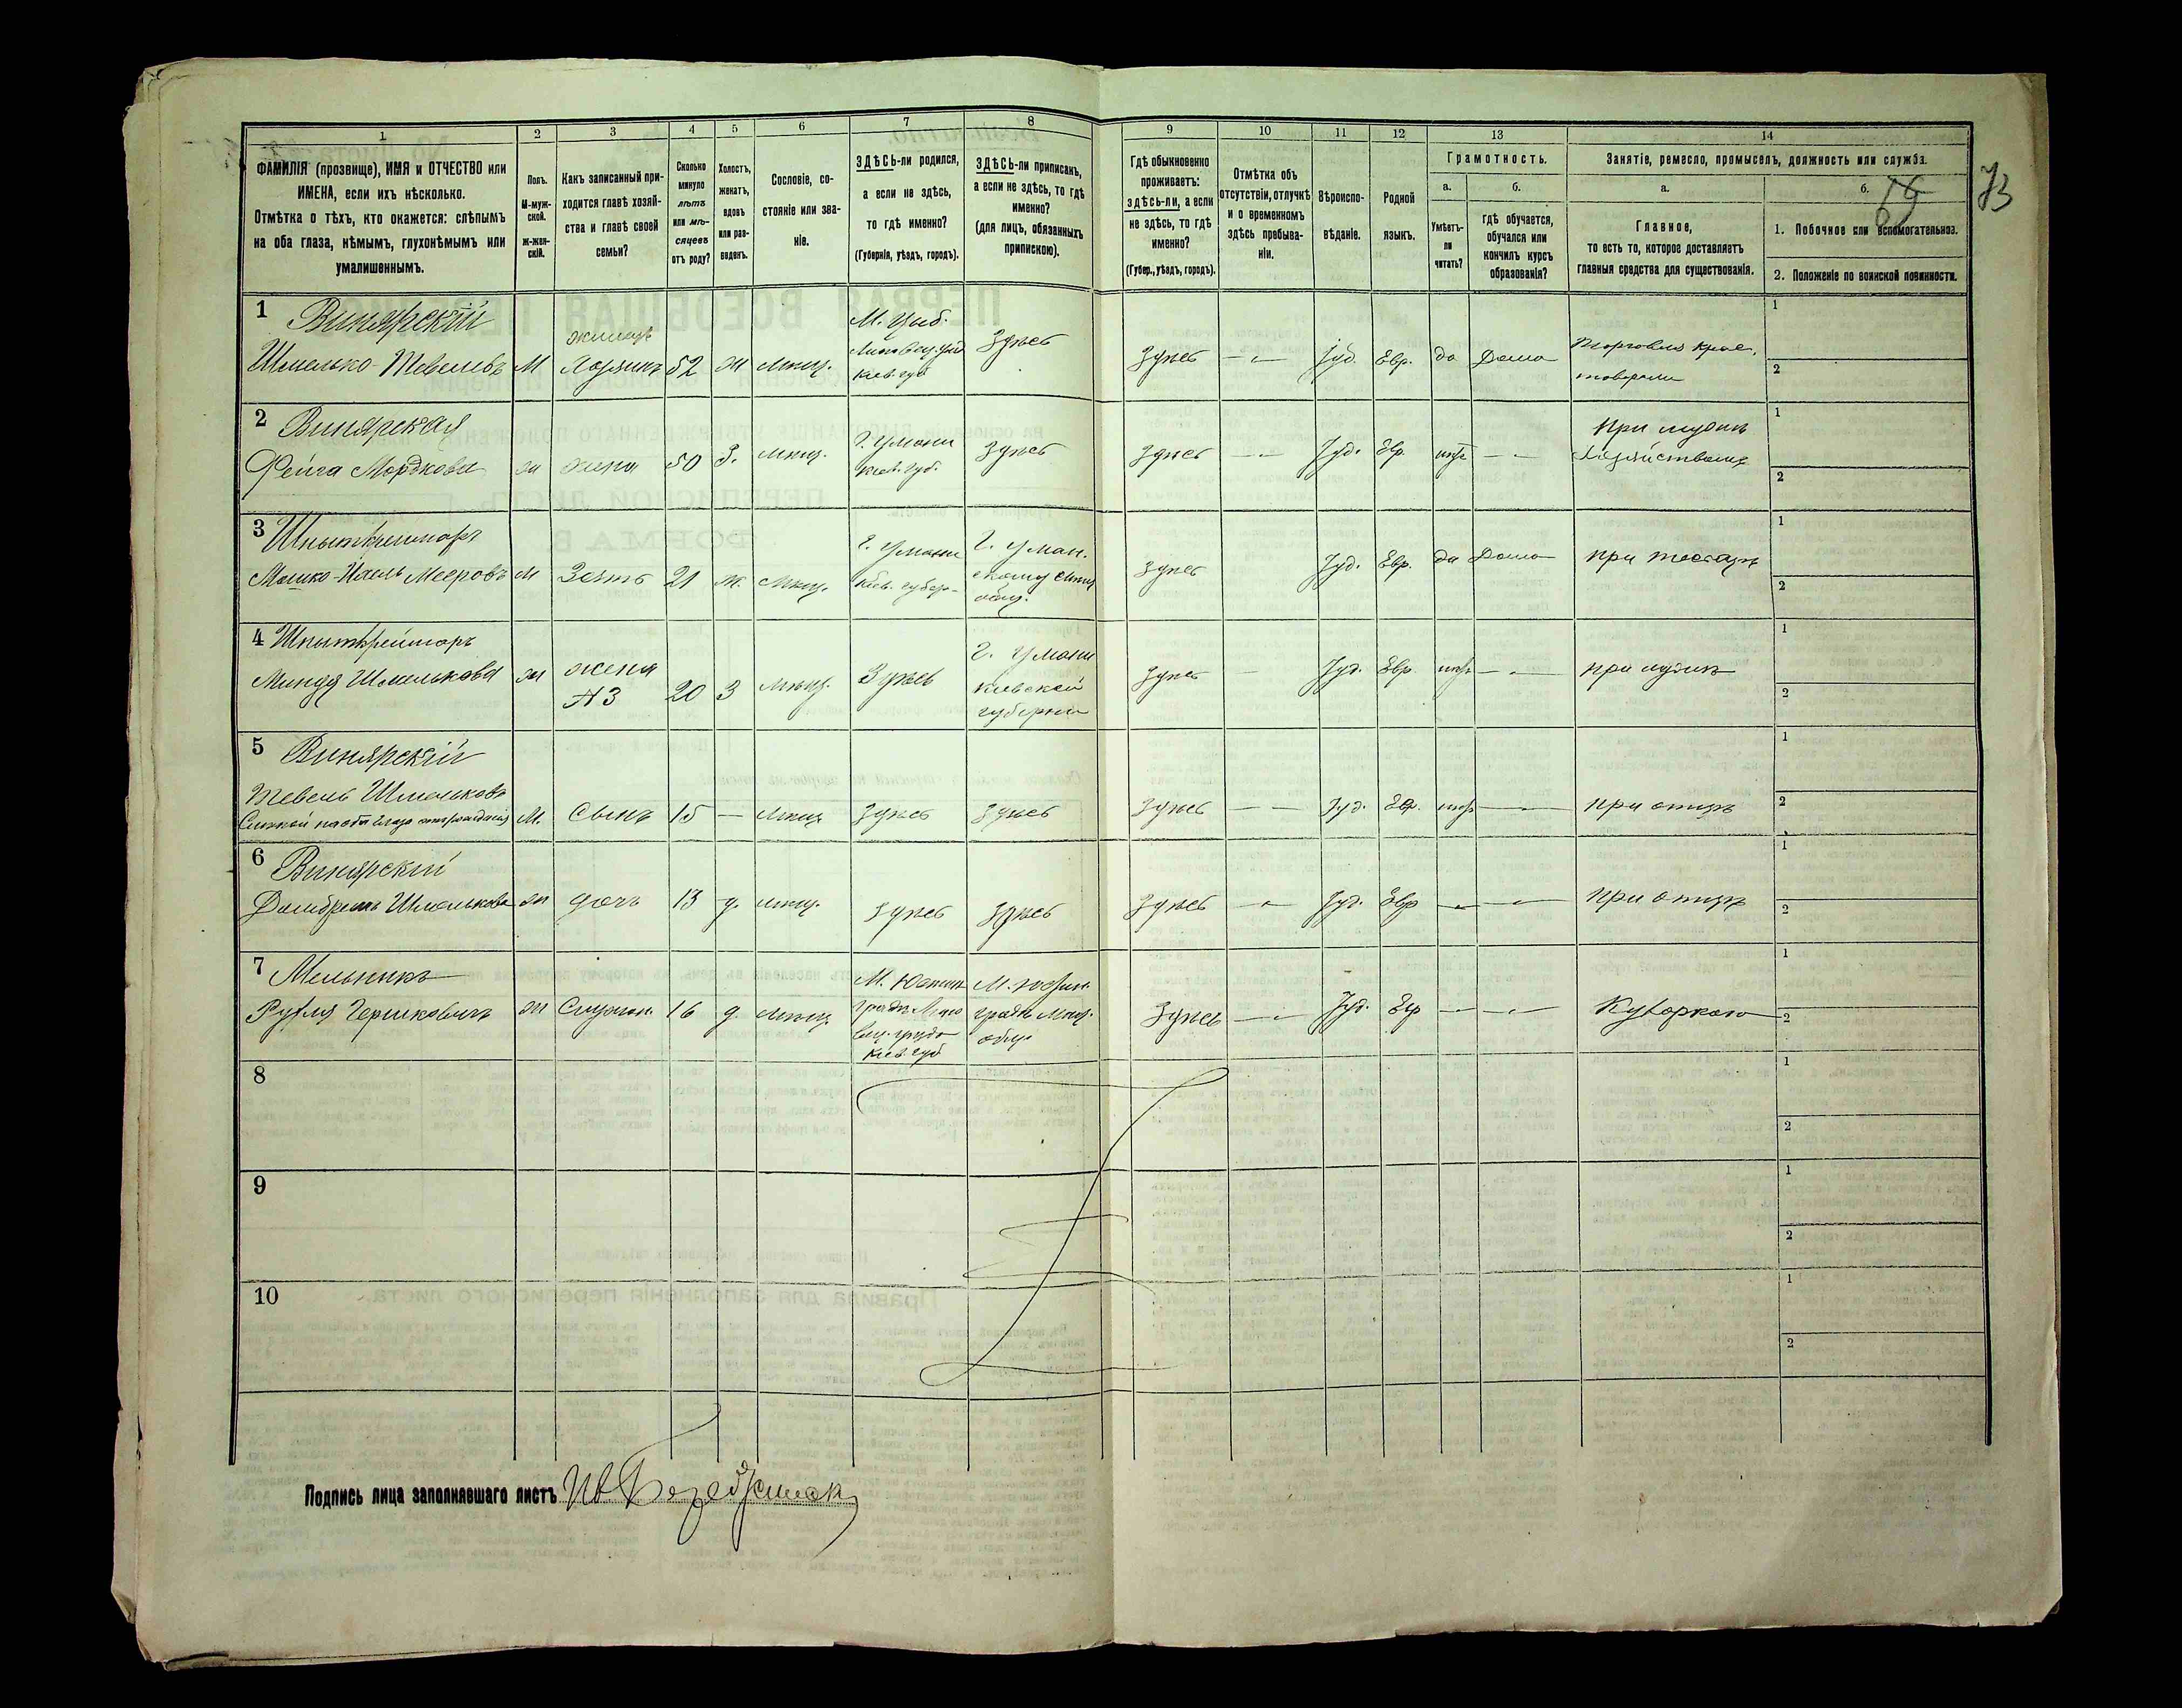 1
2
3
4
5
6
7
8
ФАМИЛІЯ (прозвище), ИМЯ и ОТЧЕСТВО или
ИМЕНА, если ихъ нѣсколько.
Отмѣтка о тѣхъ, кто окажется: слѣпымъ
на оба глаза, нѣмымъ, глухонѣмымъ или
умалишеннымъ.
Полъ.
М-муж-
ской.
ж-жен-
скій.
Какъ записанный при-
ходится главѣ хозяй-
ства и главѣ своей
семьи?
Сколько
минуло
лѣтъ
или мѣ-
сяцевъ
отъ роду?
Холостъ,
женатъ,
вдовъ
или раз-
веденъ.
Сословіе, со-
стояніе или зва-
ніе.
ЗДѢСЬ-ли родился,
а если не здѣсь,
то гдѣ именно?
(Губернія, уѣздъ, городъ).
ЗДѢСЬ-ли приписанъ,
а если не здѣсь, то гдѣ
именно?
(для лицъ, обязанныхъ
припискою).
9
10
11
12
13
14
Гдѣ обыкновенно
проживаетъ:
здѣсь-ли, а если
не здѣсь, то гдѣ
именно?
(Губер., уѣздъ, городъ).
Отмѣтка объ
отсутствіи, отлучкѣ
и о временномъ
здѣсь пребыва-
ніи.
Вѣроиспо-
вѣданіе.
Родной
языкъ.
Грамотность.
а.
б.
Умѣетъ-
ли
читать?
Гдѣ обучается,
обучался или
кончилъ курсъ
образованія?
Занятіе, ремесло, промыселъ, должность или служба.
а.
б.
Главное,
то есть то, которое доставляетъ
главныя средства для существованія.
1. Побочное или вспомогательное.
2. Положеніе по воинской повинности.
73
1 Винярскій
Шмелько-Тевелевъ М 52 ж мѣщ.
Кіев. губ
Здѣсь
Здѣсь Іуд. Евр. да Дома
Торговля
товарами
1
2
2 Винярская
Фейга Мордкова ж жена 50 З. мѣщ.
Г. Умани
Кіев. губ.
Здѣсь
Здѣсь Іуд. Евр. нѣтъ
При мужѣ
1
2
3
Мошко- Мееровъ М Зять 21 ж. мѣщ.
Г. Умани
Кіев. губер.
Г. Уман.
общ.
Здѣсь Іуд. Евр. да Дома при
1
2
4
Шмелькова ж жена
№3 20 З мѣщ. Здѣсь
Г. Умани
Кіевской
губерніи
Здѣсь Іуд. Евр. нѣтъ при мужѣ
1
2
5 Винярскій
Тевель Шмельковъ
М. Сынъ 15 мѣщ Здѣсь Здѣсь
Здѣсь Іуд. Евр. нѣтъ при отцѣ
1
2
6 Винярскій
Шмелькова ж дочь 13 д. мѣщ. Здѣсь Здѣсь
Здѣсь Іуд. Евр при отцѣ
1
2
7 Мельникъ
Гершковичъ ж Служан. 16 д. мѣщ.
Кіев. губ
общ.
Здѣсь Іуд. Евр Кухаркою
1
2
8
1
2
9
1
2
10
1
2
Подпись лица заполнявшаго листъ